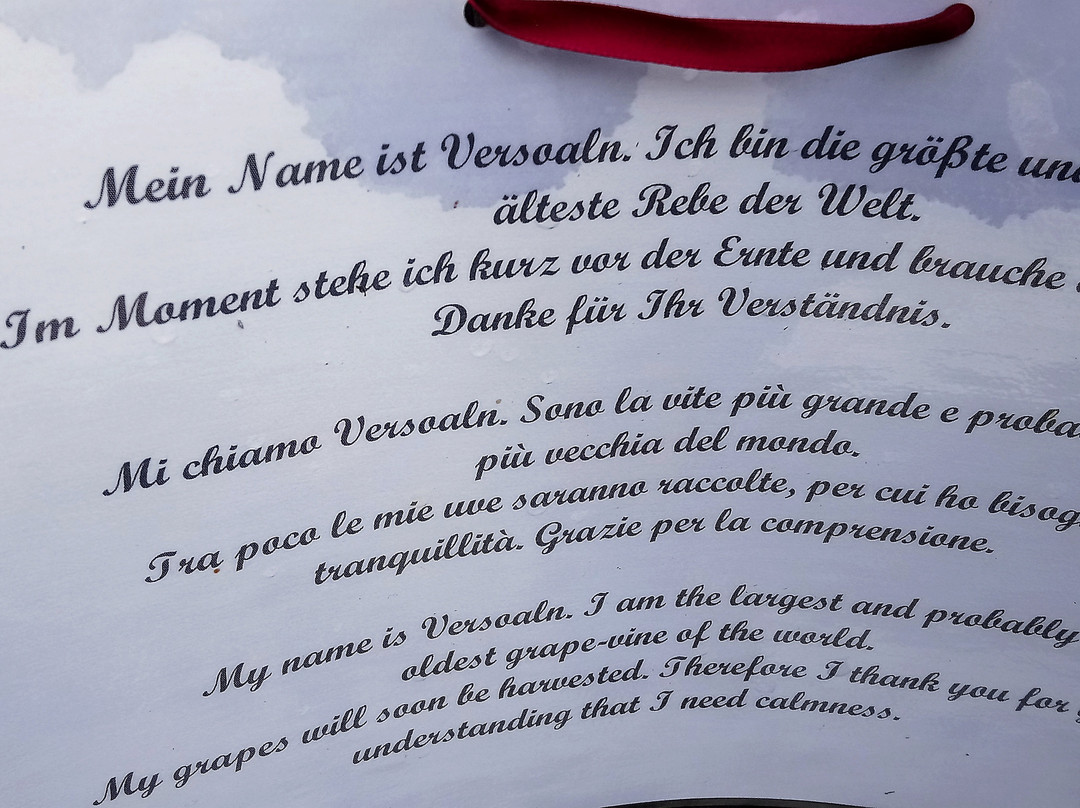 Mein Name ist Versoaln. Ich bin die größte und
älteste Rebe der Welt.
Im Moment stehe ich kurz vor der Ernte und brauche
Danke für Ihr Verständnis.
Mi chiamo Versoaln. Sono la vite più grande e proba
più vecchia del mondo.
Tra poco le mie uve saranno raccolte, per cui ho bisog
tranquillità. Grazie per la comprensione.
My name is Versoaln. I am the largest and probably
oldest grape-vine of the world.
My grapes will soon be harvested. Therefore I thank you for
understanding that I need calmness.